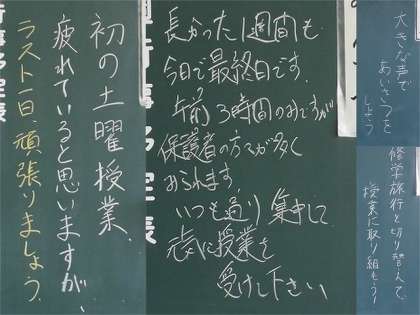 初の土曜授業。
疲れていると思いますが、
ラスト一日、頑張りましょう。
長かった1週間も
今日で最終日です。
午前3時間のみですが
保護者の方々が多く
みられます。
いつも通り集中して
授業を
受けて下さい
大きな声で
あいさつを
しよう
修学旅行と切り替えて、
授業に取り組もう!
行事予定表